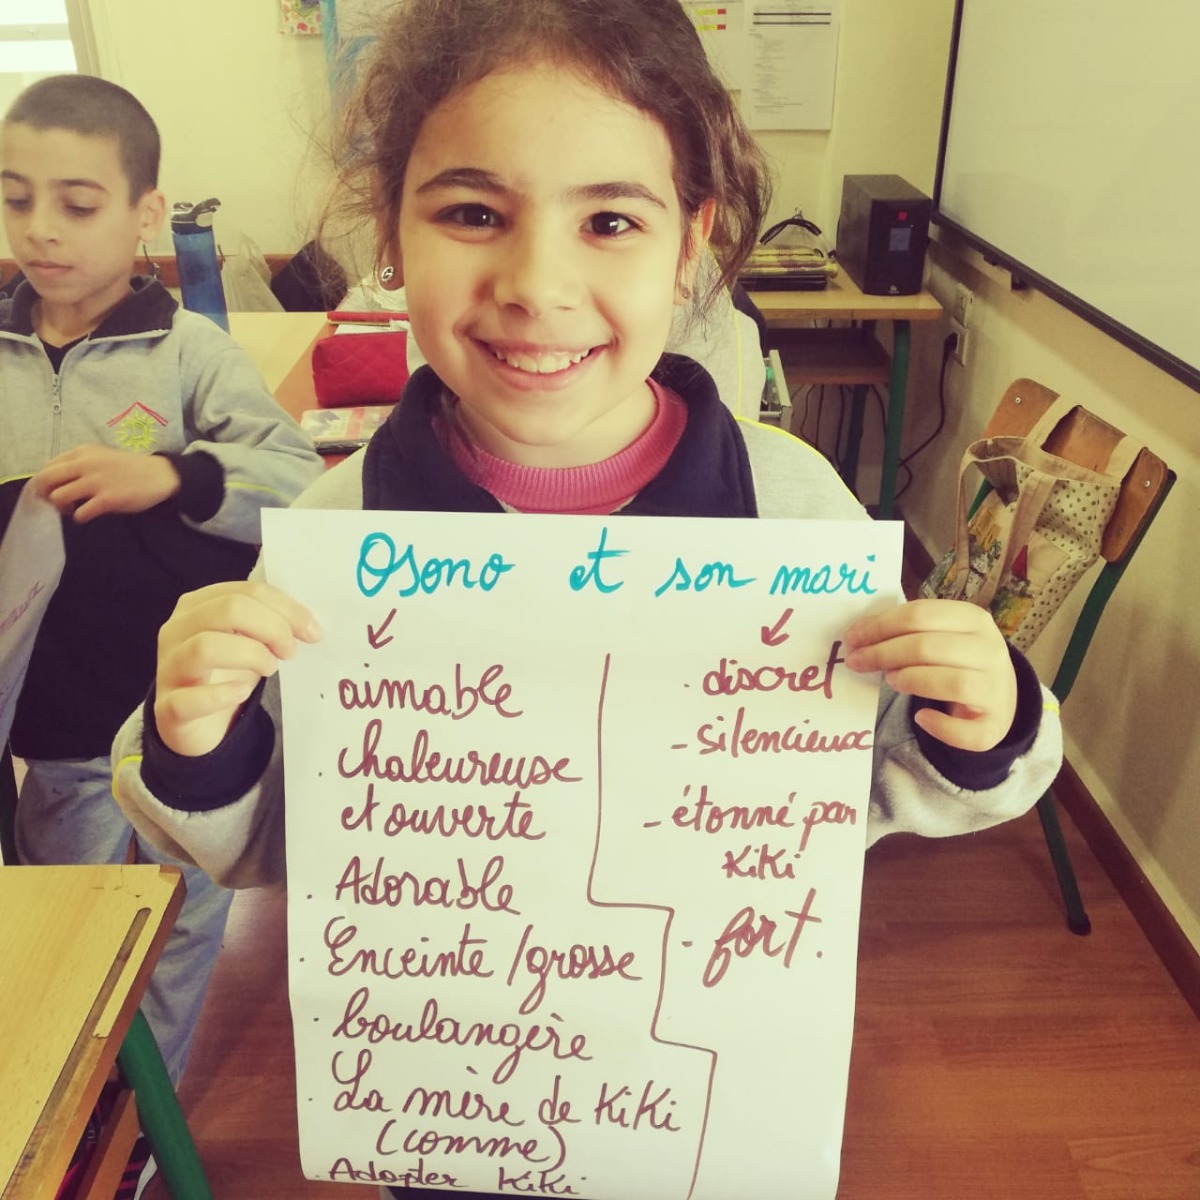 Osono et son mari
. aimable
. chaleureuse
et ouverte
. Adorable
. Enceinte / grosse
. boulangère
. La mère de KiKi
(comme)
. Adopter KiKi
. discret
- silencieux
- étonné par
KiKi
- fort.